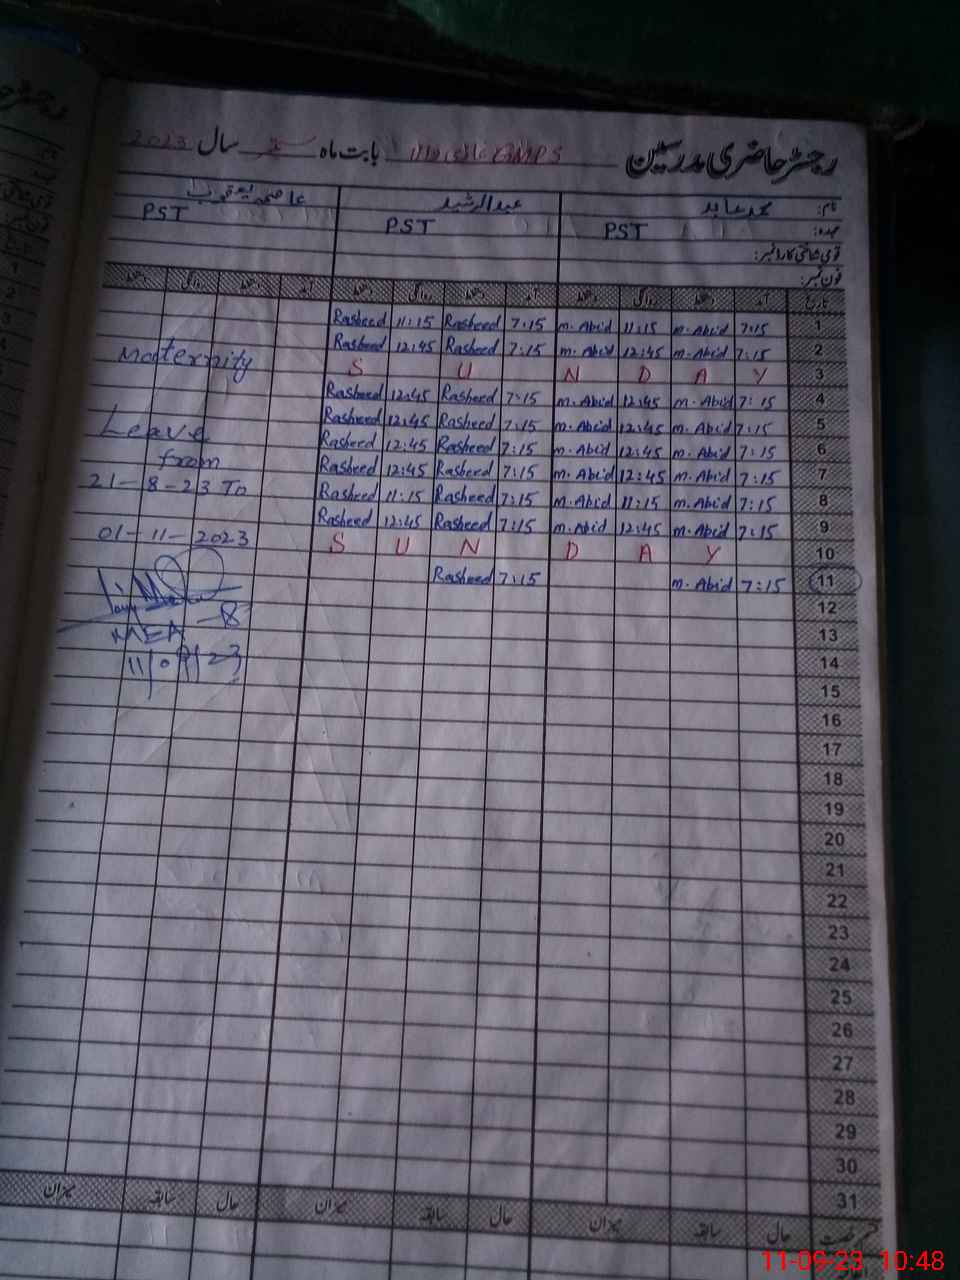 رجسٹر حاضری مدرسین GMPS بابت ماہ سال 2023
نام: محمد عابد عبدالرشید عاصمہ یعقوب
عہدہ: PST PST PST
قومی شناختی کارڈ نمبر:
فون نمبر:
تاریخ آمد دستخط روانگی دستخط آمد دستخط روانگی دستخط آمد دستخط روانگی دستخط
Rasheed 11:15 Rasheed 7:15 m. Abid 11:15 m. Abid 7:15 1
Rasheed 12:45 Rasheed 7:15 m. Abid 12:45 m. Abid 7:15 2
Maternity S U N D A Y 3
Rasheed 12:45 Rasheed 7:15 m. Abid 12:45 m. Abid 7:15 4
Leave Rasheed 12:45 Rasheed 7:15 m. Abid 12:45 m. Abid 7:15 5
from Rasheed 12:45 Rasheed 7:15 m. Abid 12:45 m. Abid 7:15 6
21-8-23 To Rasheed 12:45 Rasheed 7:15 m. Abid 12:45 m. Abid 7:15 7
Rasheed 11:15 Rasheed 7:15 m. Abid 11:15 m. Abid 7:15 8
01-11-2023 Rasheed 12:45 Rasheed 7:15 m. Abid 12:45 m. Abid 7:15 9
S U N D A Y 10
Rasheed 7:15 m. Abid 7:15 11
MEA-8 12
11/09/23 13
14
15
16
17
18
19
20
21
22
23
24
25
26
27
28
29
30
31
حال سابقہ میزان حال سابقہ میزان حال سابقہ میزان
11-09-23 10:48